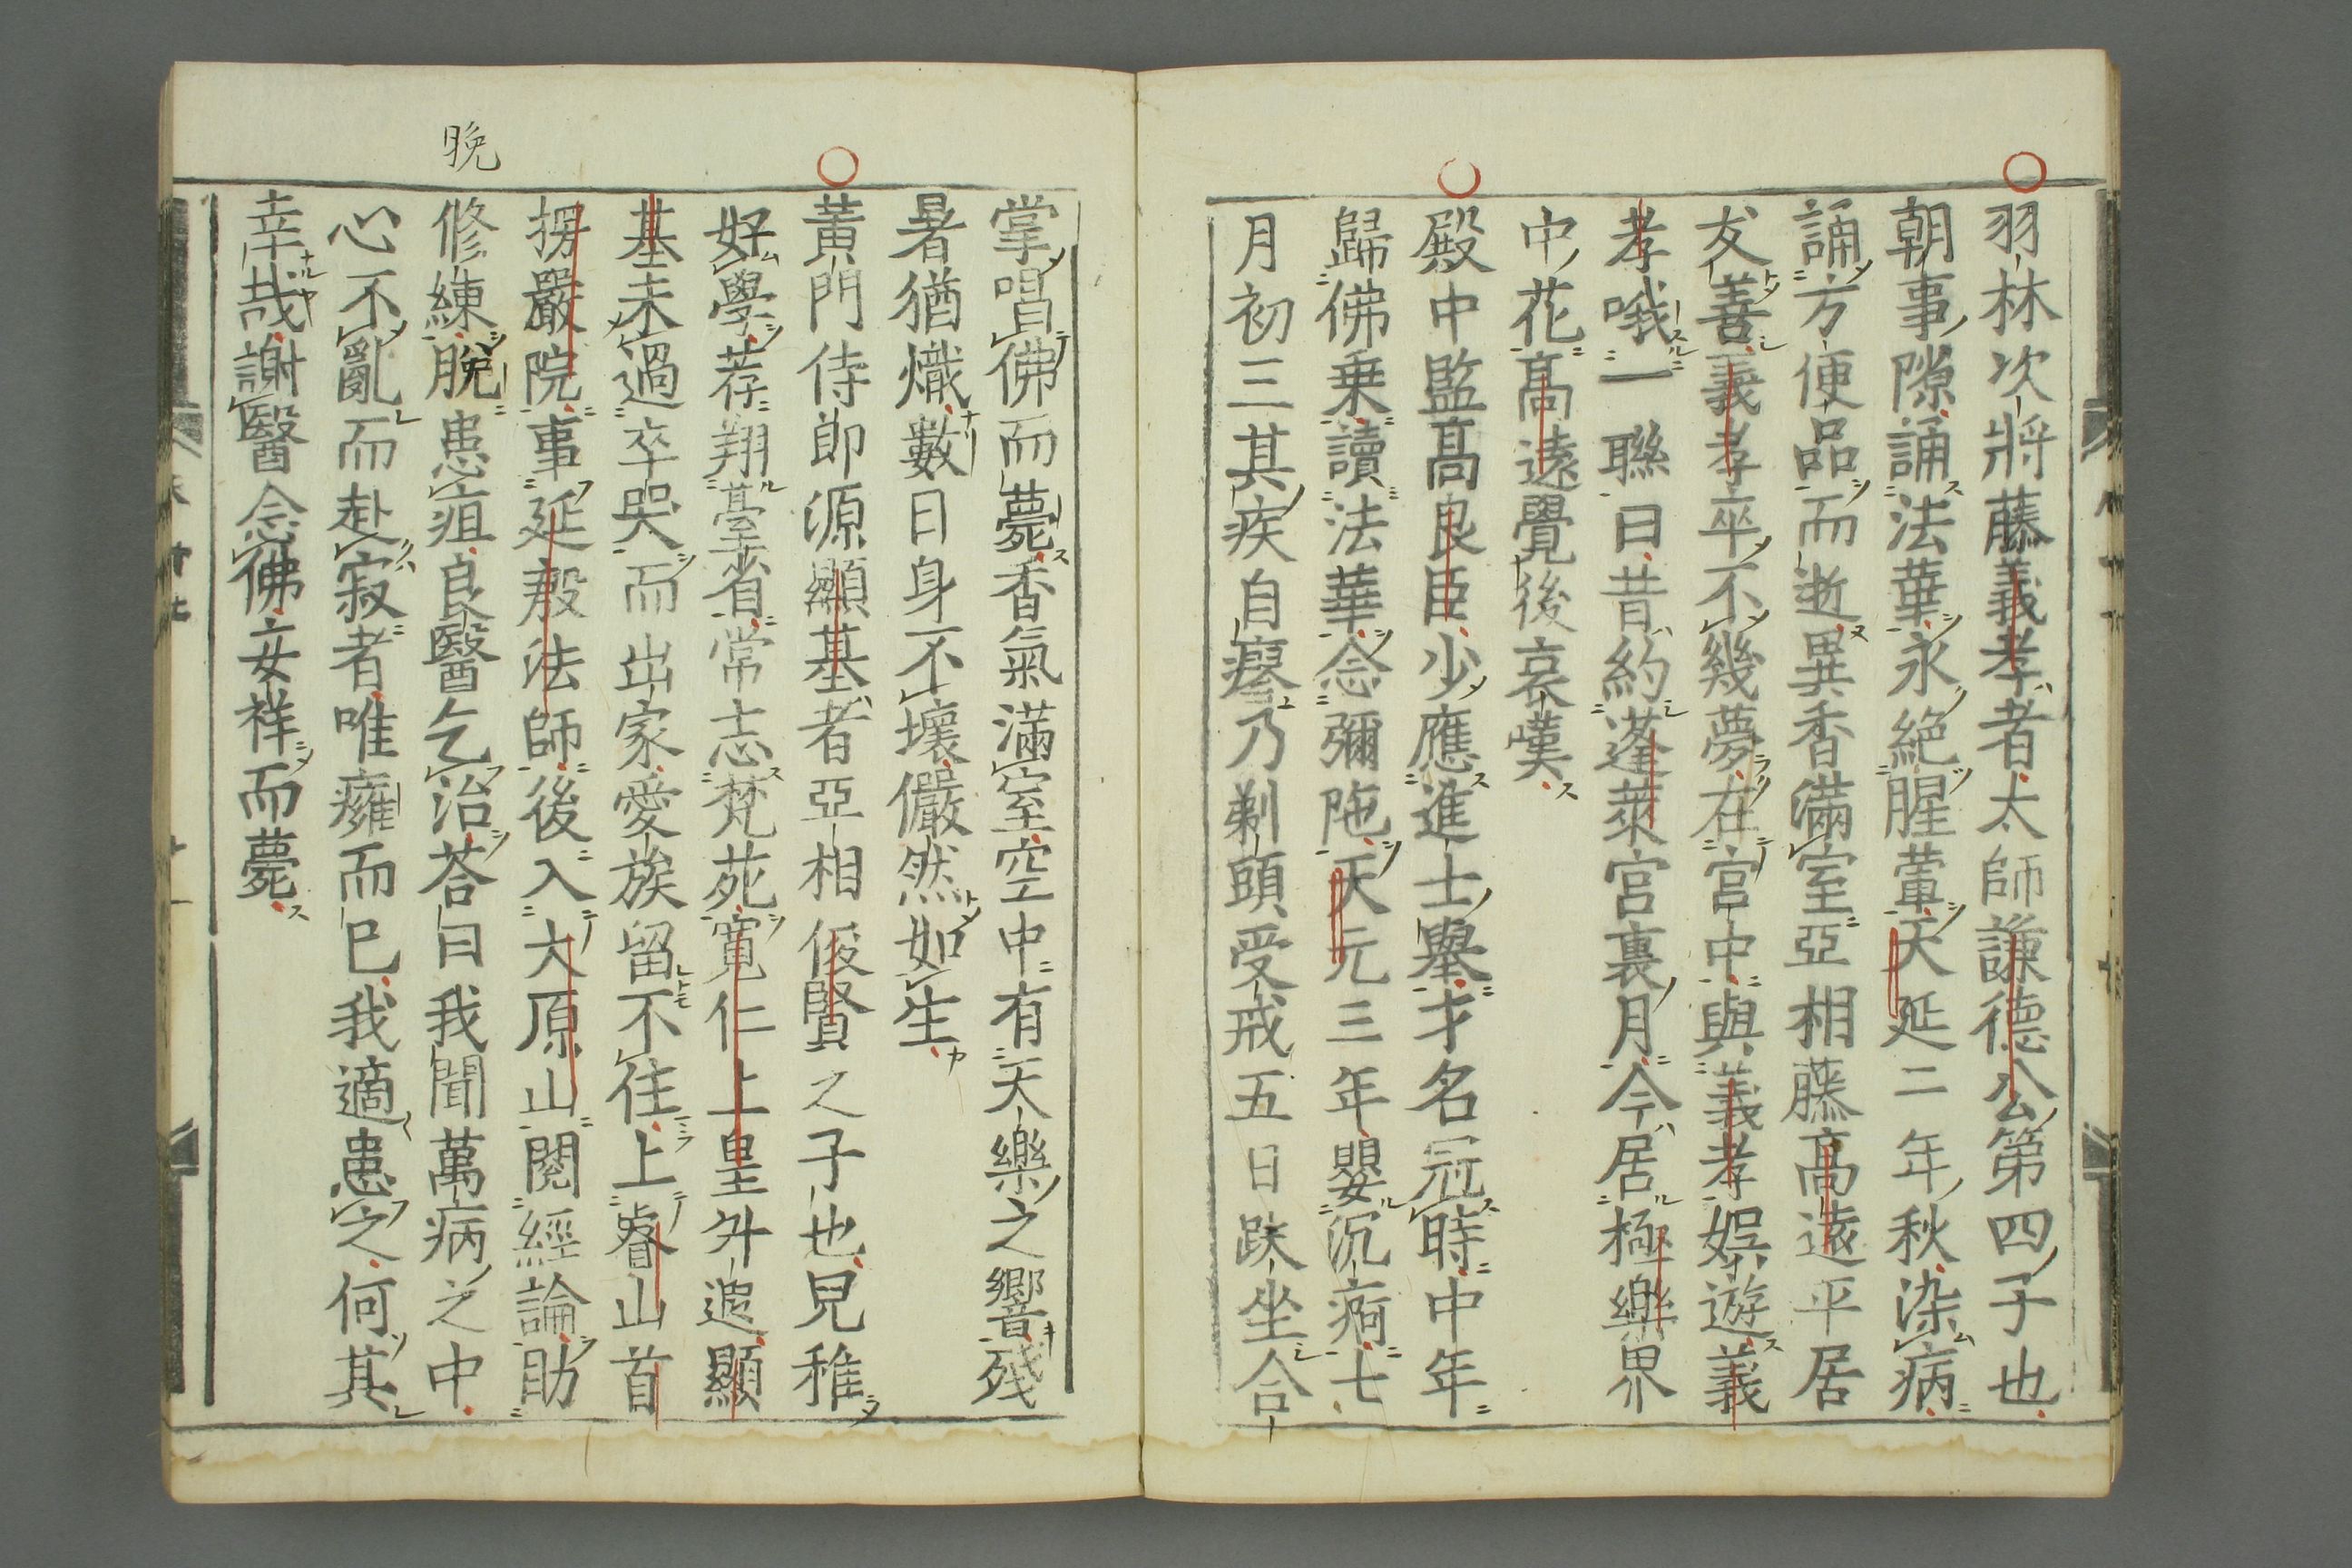 羽林次將藤義孝者太師謙德公第四子也
朝事隙誦法華永絕腥葷天延二年秋染病
誦方便品而逝異香滿室亞相藤高遠平居
友善義孝卒不幾夢在宮中與義孝娯遊義
孝哦一聯曰昔約蓬萊宮裏月今居極樂界
中花高遠覺後哀嘆
殿中監高良臣少應進士舉才名冠時中年
歸佛乗讀法華念彌陁天元三年嬰沉痾七
月初三其疾自瘳乃剃頭受戒五日趺坐合
掌唱佛而薨香氣滿室空中有天樂之響殘
暑猶熾數日身不壞儼然如生
黃門侍郎源顯基者亞相俊賢之子也兒稚
好學荐翔臺省常志梵苑寬仁上皇升遐顯
基未過卒哭而出家愛族留不住上睿山首
楞嚴院事延殷法師後入大原山閱經論助
修練脫患疽良醫乞治荅曰我聞萬病之中
心不亂而赴寂者唯癰而已我適患之何其
幸哉謝醫念佛安祥而薨
晩